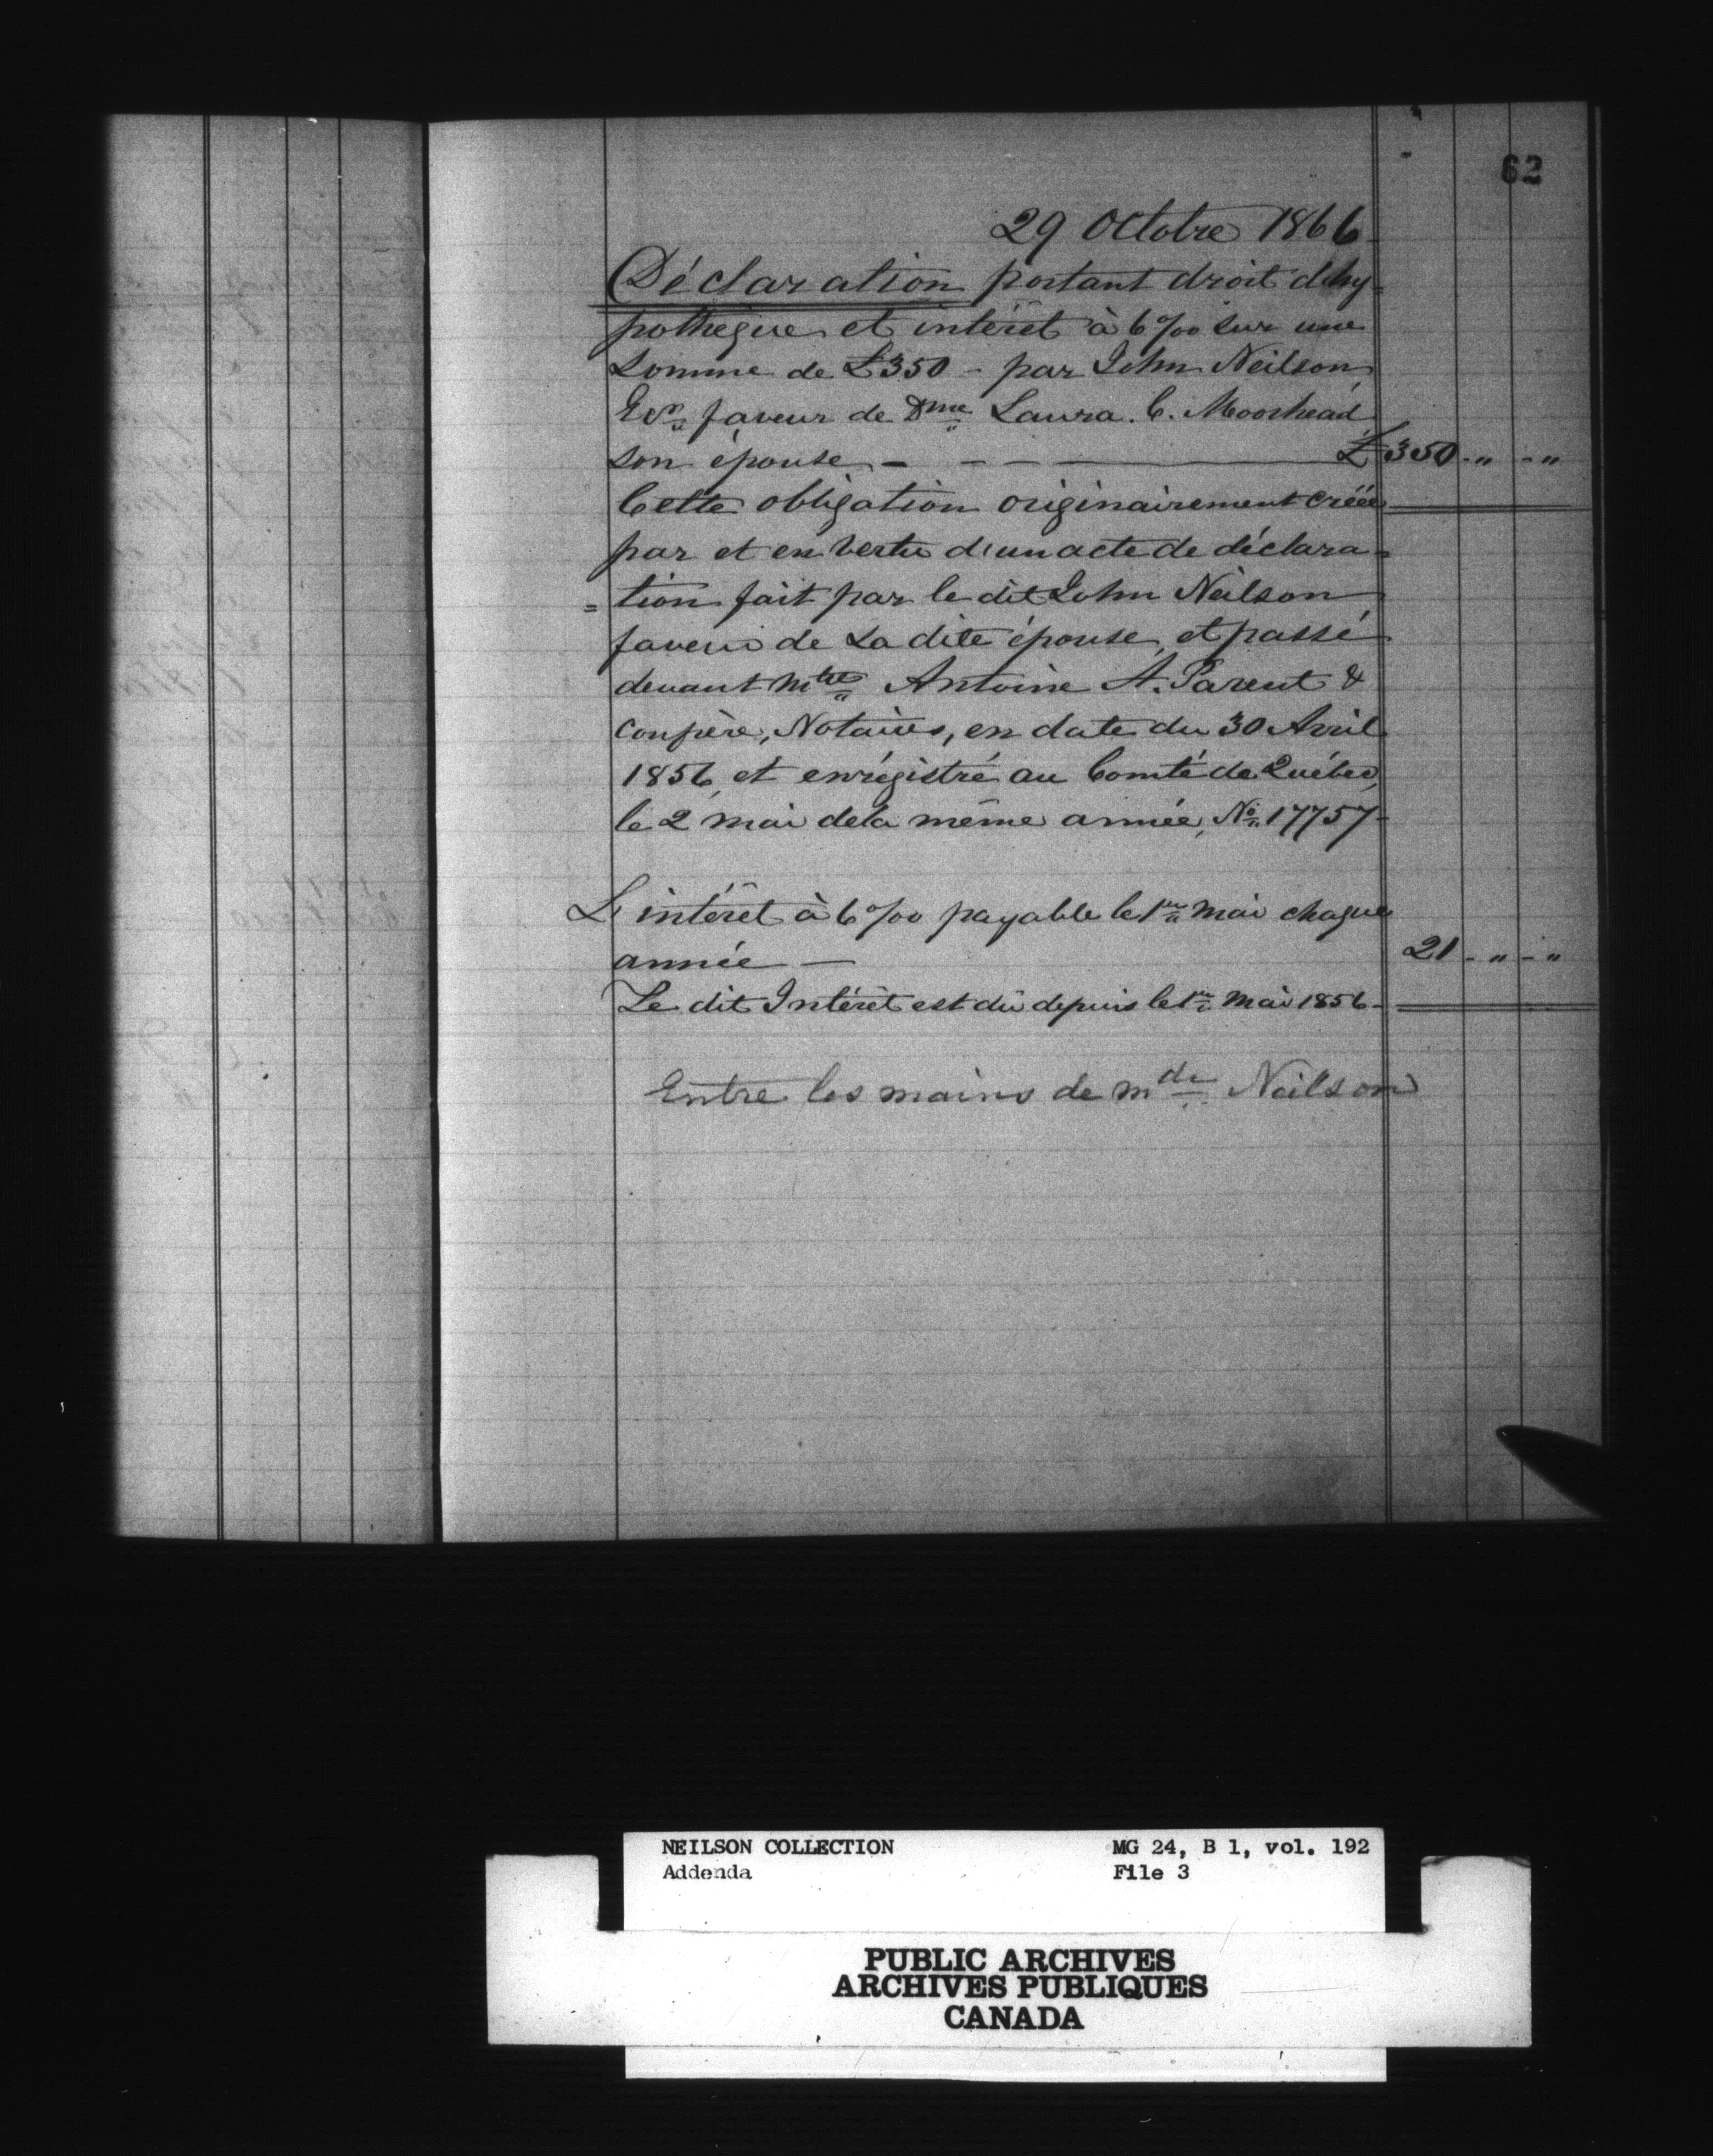 62
29 Octobre 1866
Déclaration portant droit d'hy=
pothèque et intérêt à 6 %0 sur une
Somme de £350 - par John Neilson,
faveur de Dme Laura. C. Moorhead
son épouse - - - - £ 350 - " - "
Cette obligation originairement créée
par et en vertu d'un acte de déclara=
=tion fait par le dit John Neilson,
faveur de La dite épouse, et passé
devant Mtre Antoine A. Parent &
confrère, Notaires, en date du 30 Avril
1856, et enrégistré au Comté de Québec,
le 2 mai de la même année, No. 17757-
L'intérêt à 6 %0 payable le 1er mai chaque
année — 21 - " - "
Le dit Intérêt est dû depuis le 1er Mai 1856-
Entre les mains de Mde Neilson
NEILSON COLLECTION MG 24, B 1, vol. 192
Addenda File 3
PUBLIC ARCHIVES
ARCHIVES PUBLIQUES
CANADA